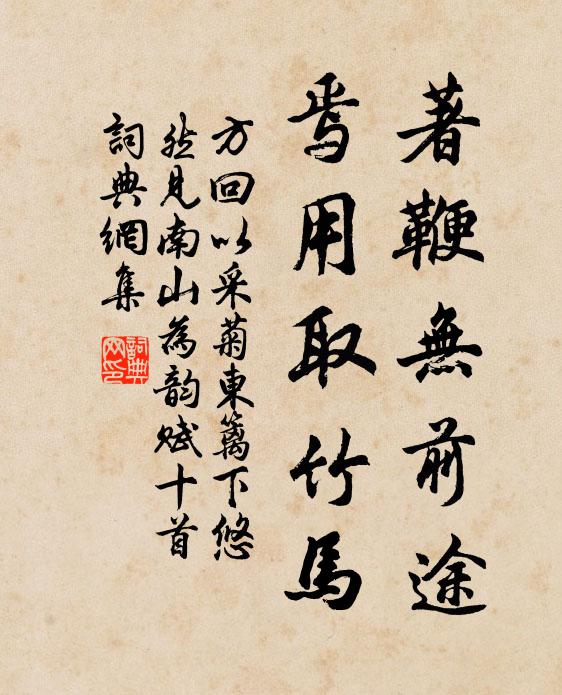 著鞭無前途
焉用取竹馬
方回以采菊東籬下悠
然見南山為韵賦十首
詞典網集
詞典網印